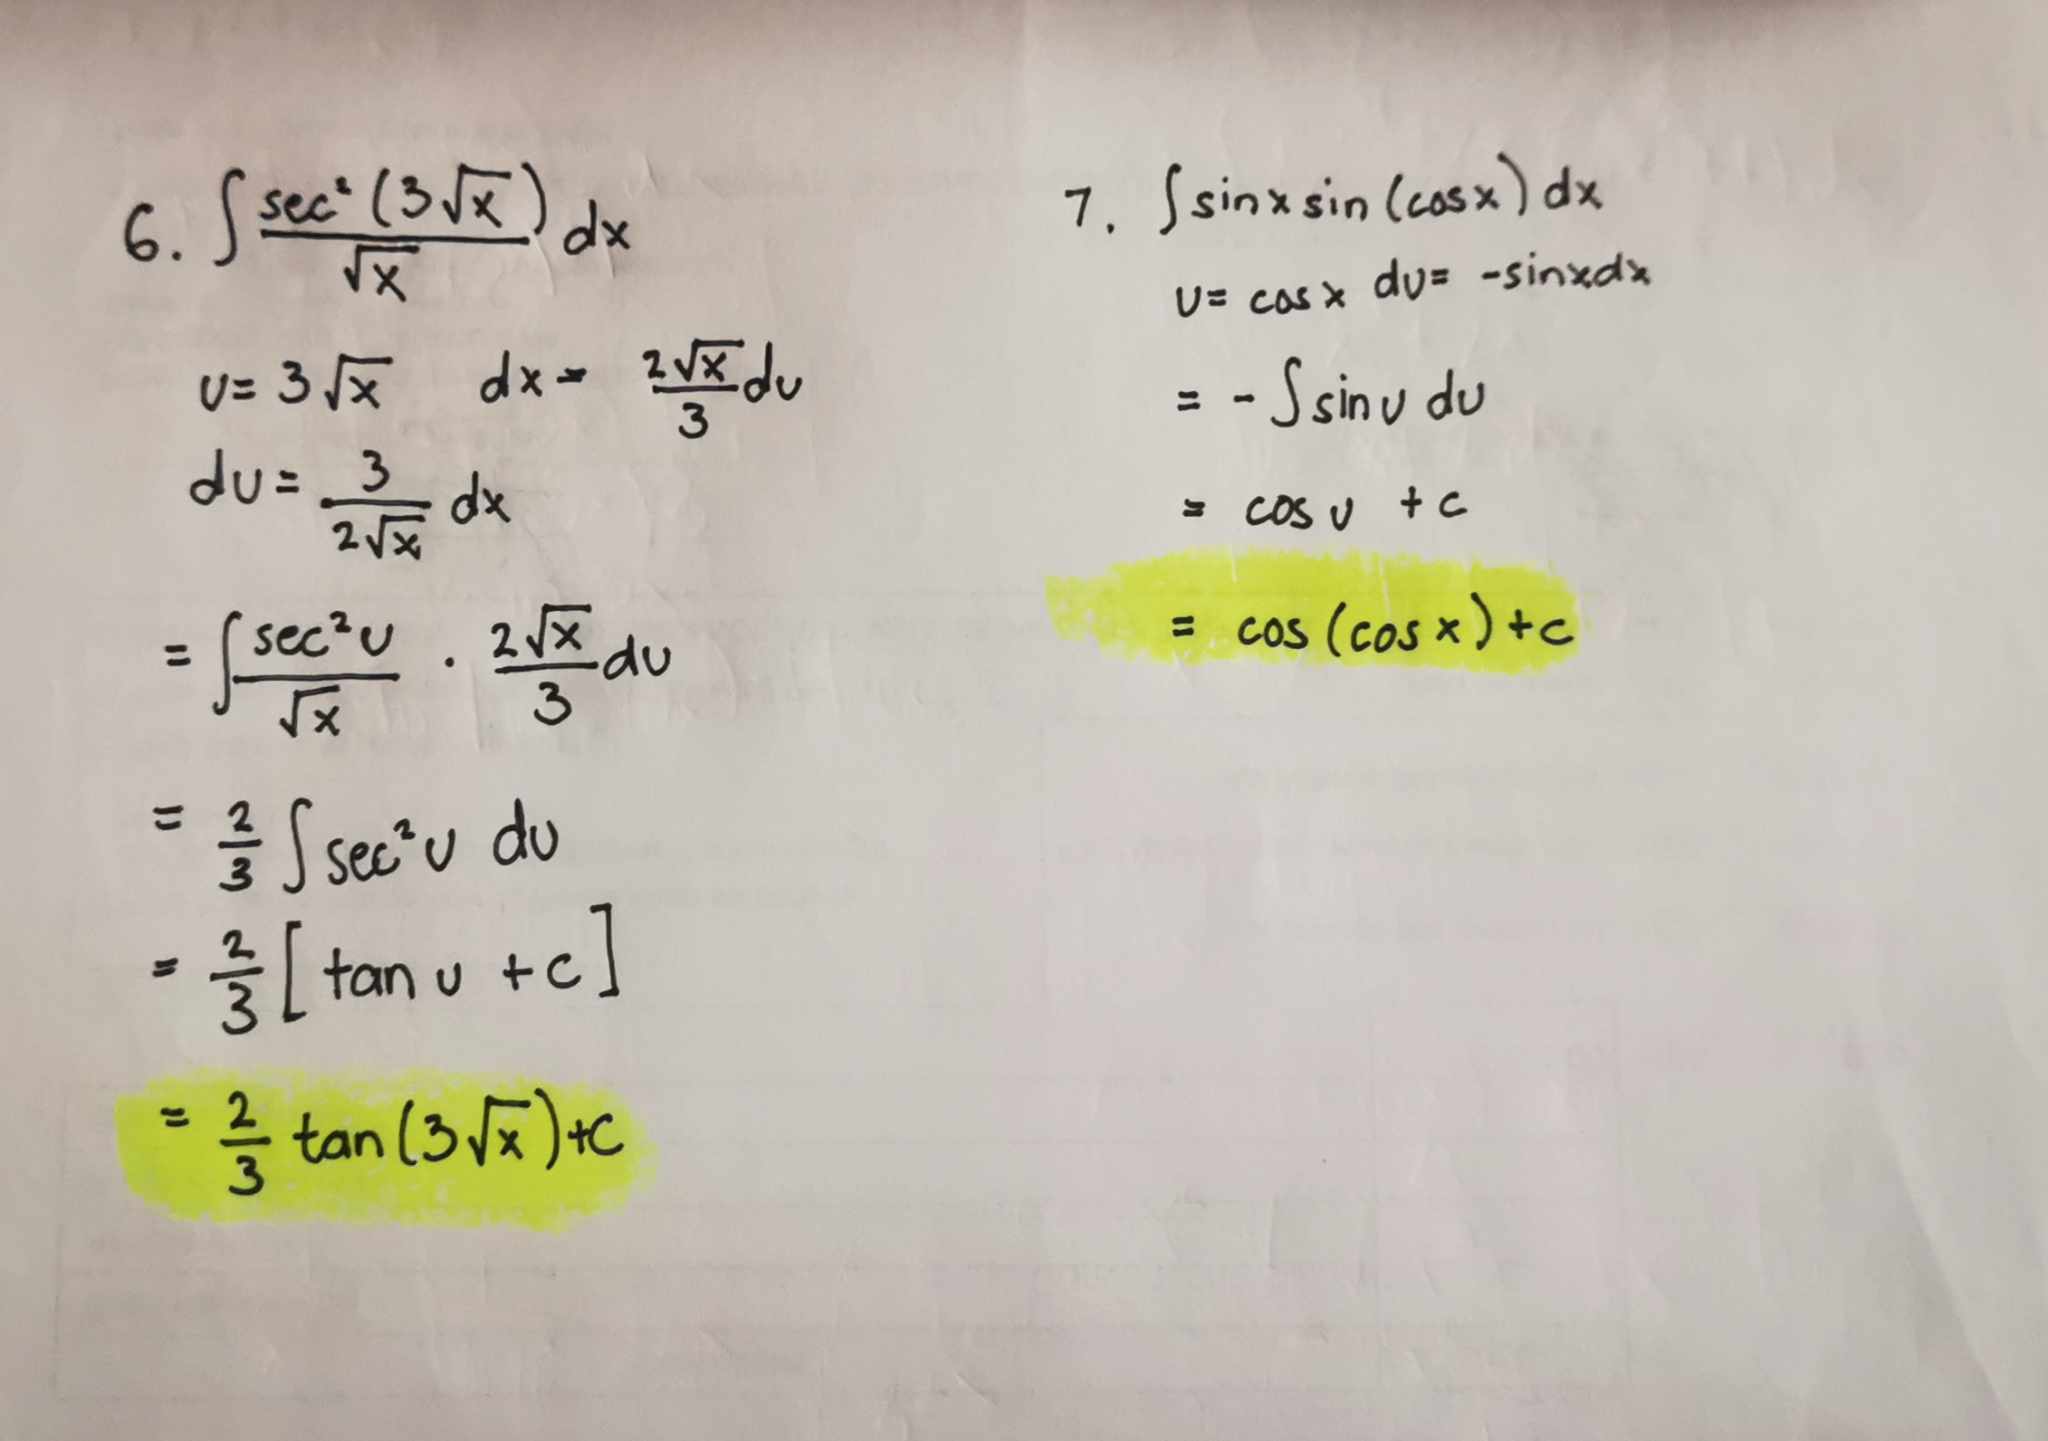 6. ∫ sec²(3√x)/√x dx
u= 3√x dx= 2√x/3 du
du= 3/2√x dx
= ∫ sec²u/√x · 2√x/3 du
= 2/3 ∫ sec²u du
= 2/3 [tan u +c]
= 2/3 tan(3√x)+C
7. ∫ sinx sin (cosx) dx
u= cosx du= -sinxdx
= -∫ sinu du
= cosu +c
= cos(cosx)+c